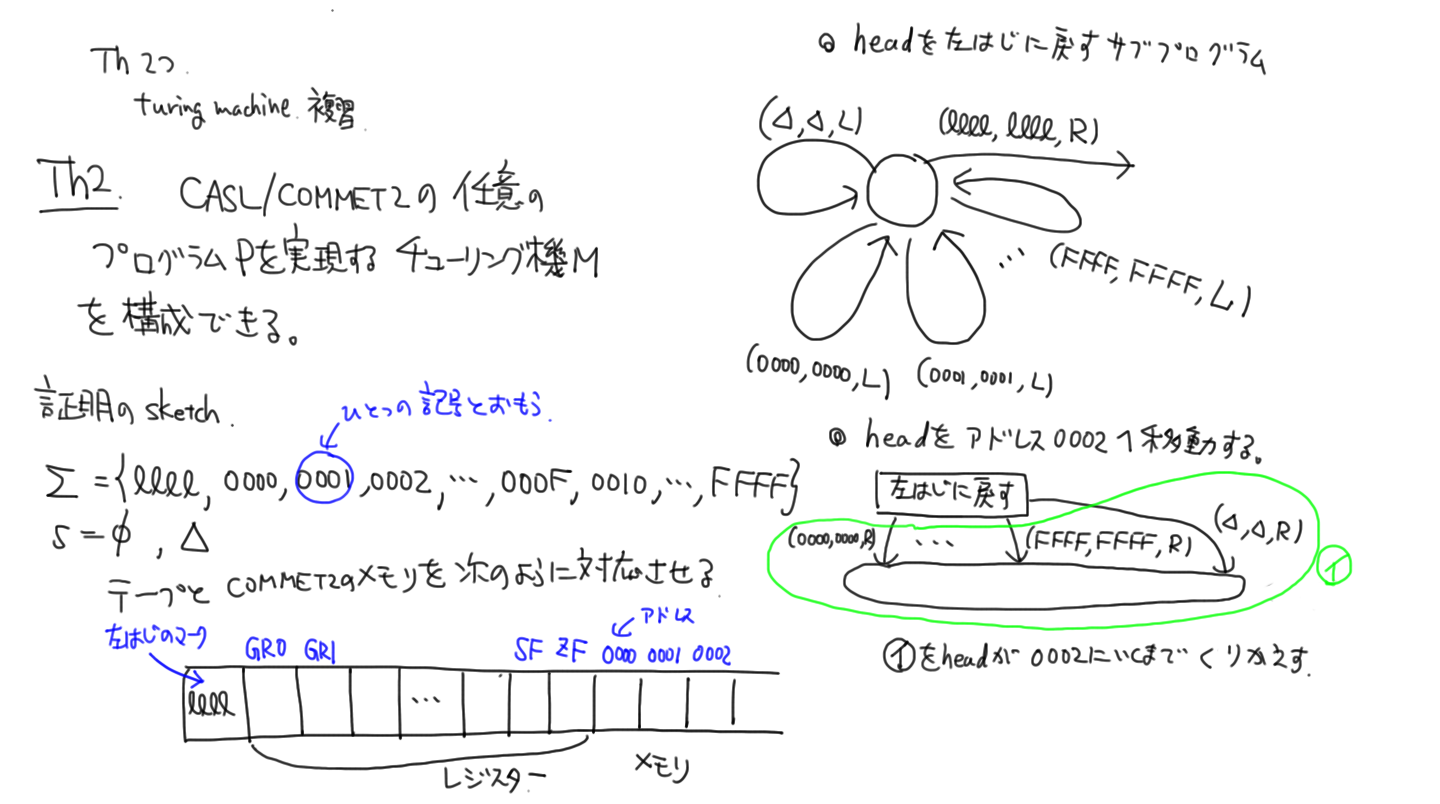 Th 2つ.
turing machine. 複習.
Th2. CASL/COMMET2の任意の
プログラムPを実現するチューリング機M
を構成できる。
証明のsketch.
ひとつの記号とおもう.
Σ={llll, 0000, 0001, 0002, …, 000F, 0010, …, FFFF}
S=φ, Δ
テープとCOMMET2のメモリを次のように対応させる
左はじのマーク
アドレス
GR0 GR1 SF ZF 0000 0001 0002
llll …
レジスター メモリ
◎ headを左はじに戻すサブプログラム
(Δ,Δ,L) (llll, llll, R)
… (FFFF, FFFF, L)
(0000,0000,L) (0001,0001,L)
◎ headをアドレス0002へ移動する。
左はじに戻す
(0000,0000,R) … (FFFF,FFFF,R) (Δ,Δ,R)
イ
イをheadが0002にいくまでくりかえす.